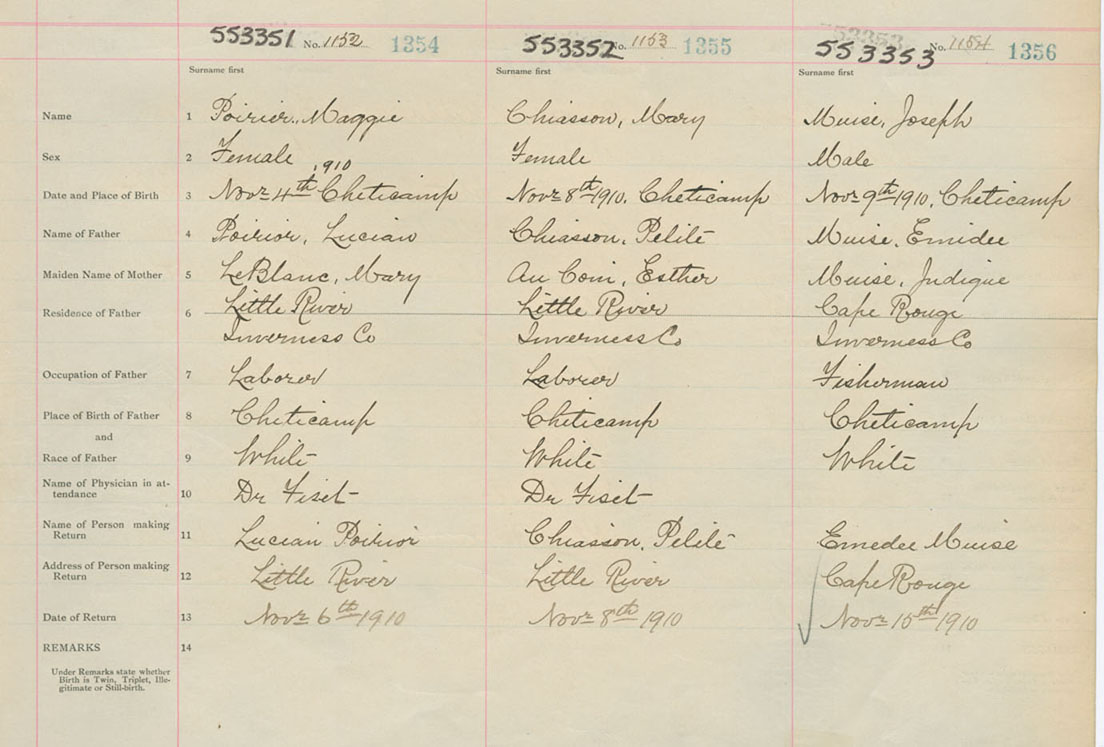 553351 No. 1152 1354 553352 No. 1153 1355 553353 No. 1154 1356
Surname first Surname first Surname first
Name 1 Poirier, Maggie Chiasson, Mary Muise, Joseph
Sex 2 Female Female Male
,910
Date and Place of Birth 3 Novr 4th Cheticamp Novr 8th 1910, Cheticamp Novr 9th 1910, Cheticamp
Name of Father 4 Poirior, Lucian Chiasson, Pelite Muise, Emidee
Maiden Name of Mother 5 LeBlanc, Mary Au Coin, Esther Muise, Judique
Residence of Father 6 Little River Little River Cape Rouge
Inverness Co Inverness Co Inverness Co
Occupation of Father 7 Laborer Laborer Fisherman
Place of Birth of Father 8 Cheticamp Cheticamp Cheticamp
and
Race of Father 9 White White White
Name of Physician in at-
tendance 10 Dr Fiset Dr Fiset
Name of Person making
Return 11 Lucian Poirior Chiasson, Pelite Emedee Muise
Address of Person making
Return 12 Little River Little River Cape Rouge
Date of Return 13 Novr 6th 1910 Novr 8th 1910 Novr 15th 1910
REMARKS 14
Under Remarks state whether
Birth is Twin, Triplet, Ille-
gitimate or Still-birth.